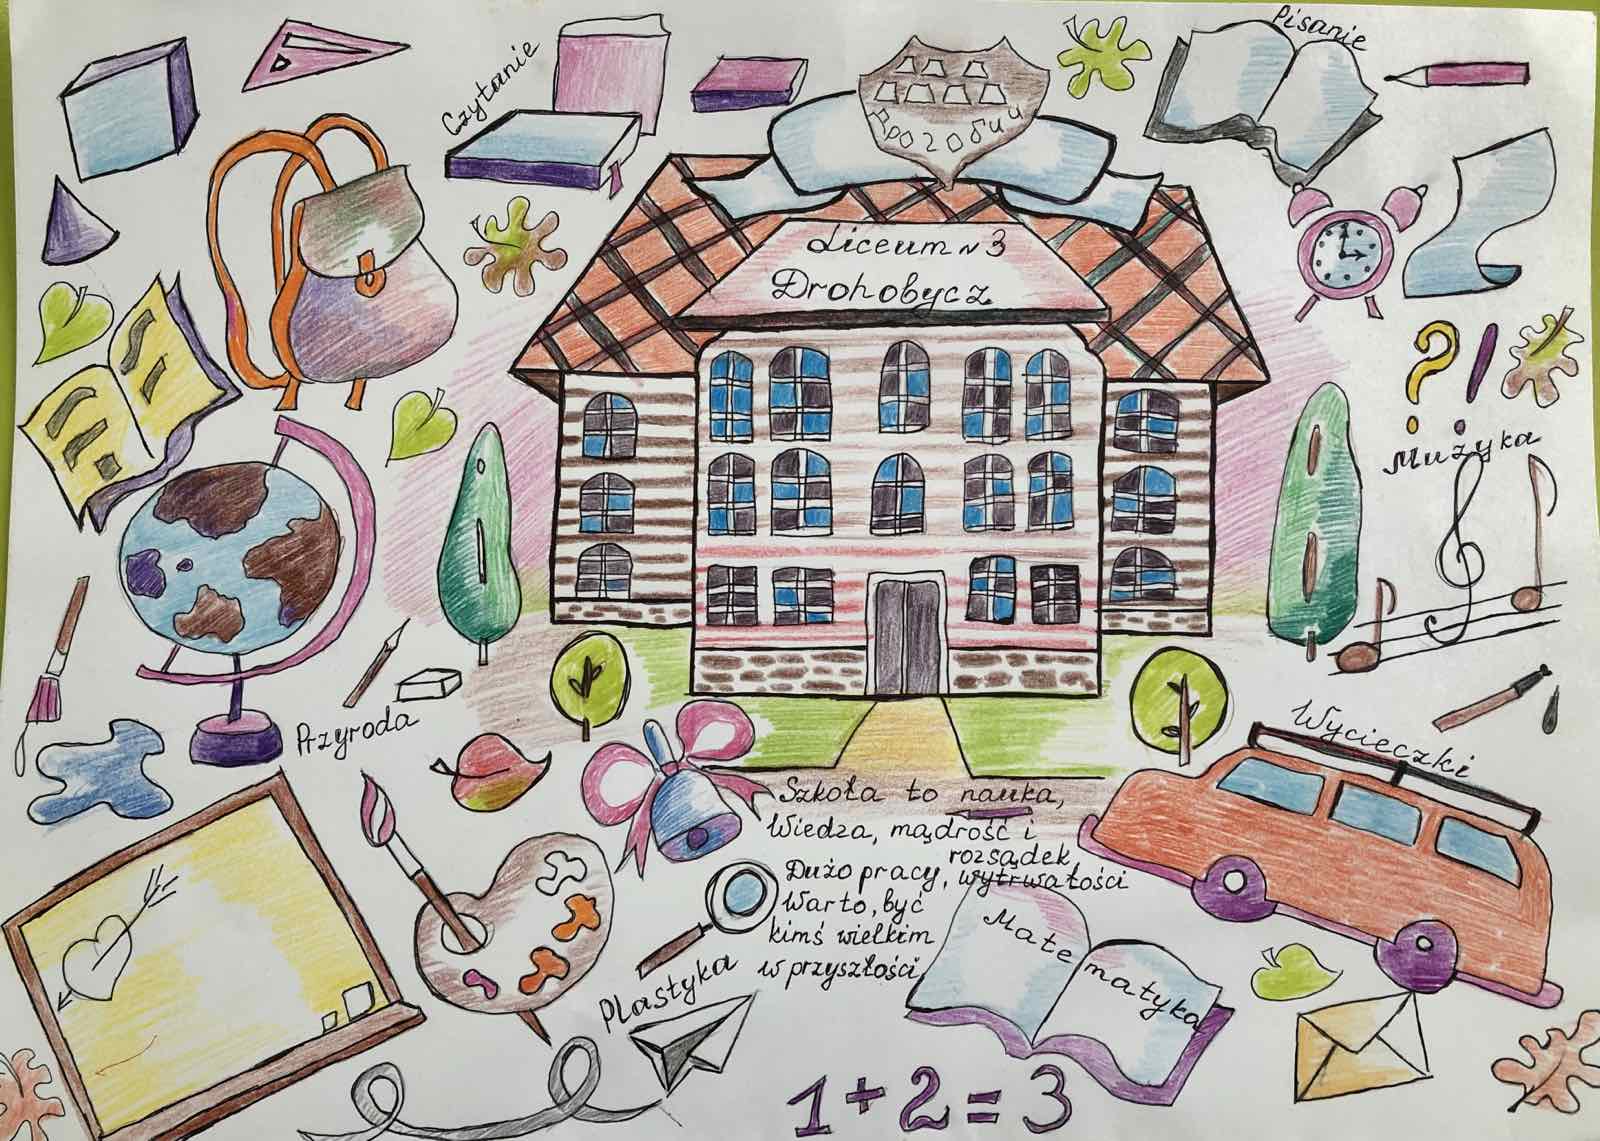 Pisanie
Czytanie
Дрогобич
Liceum N 3
Drohobycz
Mużyka
Przyroda
Wycieczki
Szkoła to nauka,
Wiedza, mądrość i
rozsądek,
Dużo pracy, wytrwałości
Warto, być
kimś wielkim
w przyszłości
Plastyka
Mate matyka
1+2=3